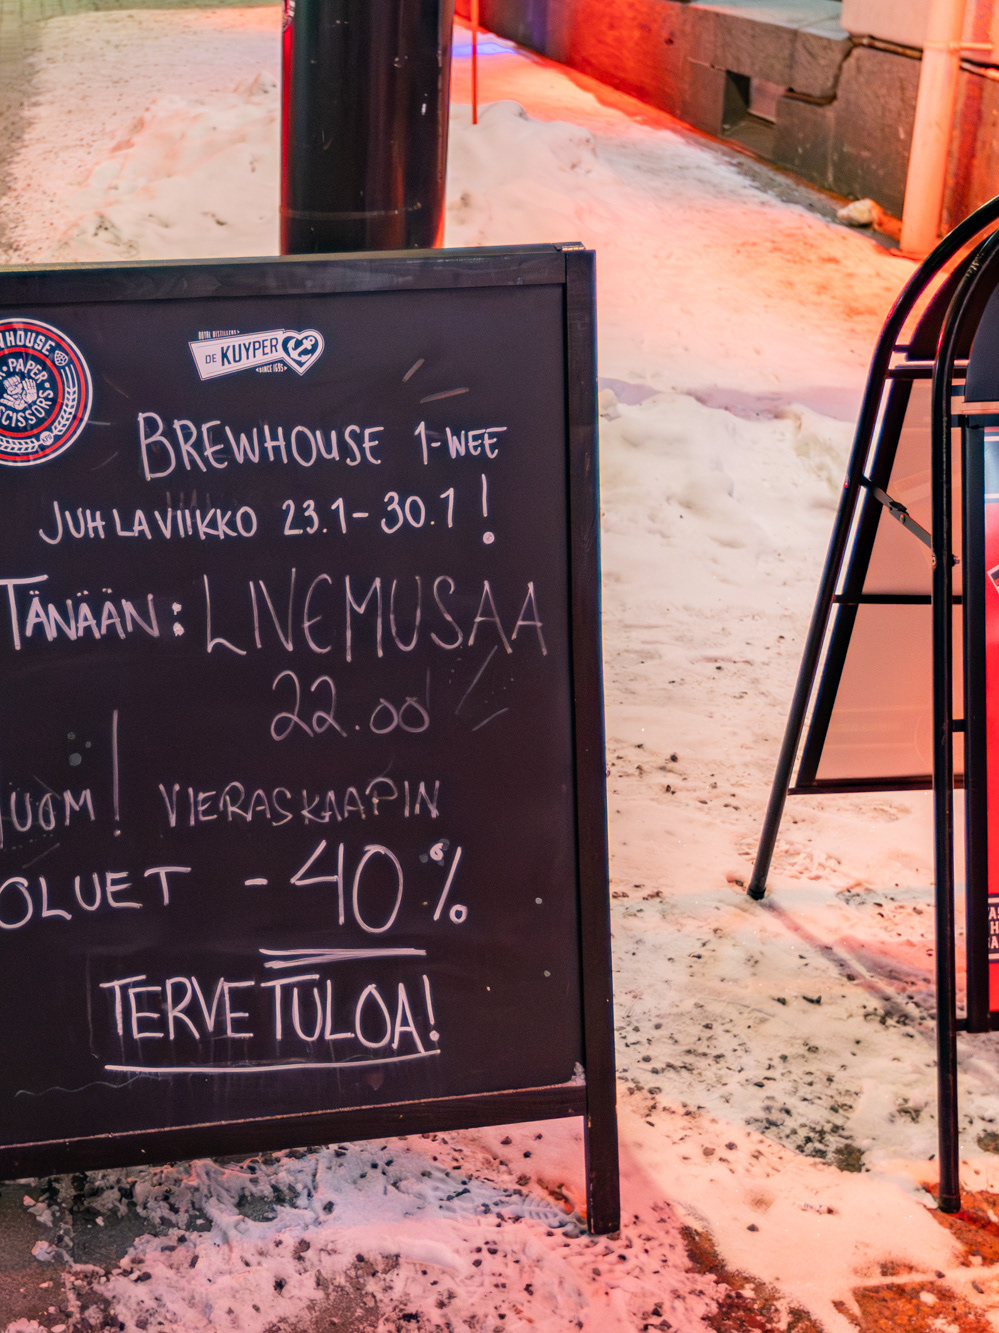 HOUSE
PAPER
SCISSORS
ROYAL DISTILLERS
DE KUYPER
SINCE 1695
BREWHOUSE 1-WEE
JUHLAVIIKKO 23.1-30.1!
TÄNÄÄN: LIVEMUSAA
22.00
HUOM! VIERASKAAPIN
OLUET -40%
TERVETULOA!